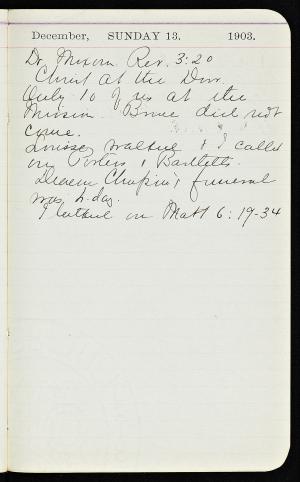 December, SUNDAY 13. 1903.
Dr. Mixon Rev. 3:20
Christ at the Door.
Only 10 of us at the
Mission. Bruce did not
come.
Louise walked & I called
on Porters & Bartletts.
Deacon Chapin's funeral
was to-day.
I talked on Matt 6:19-34